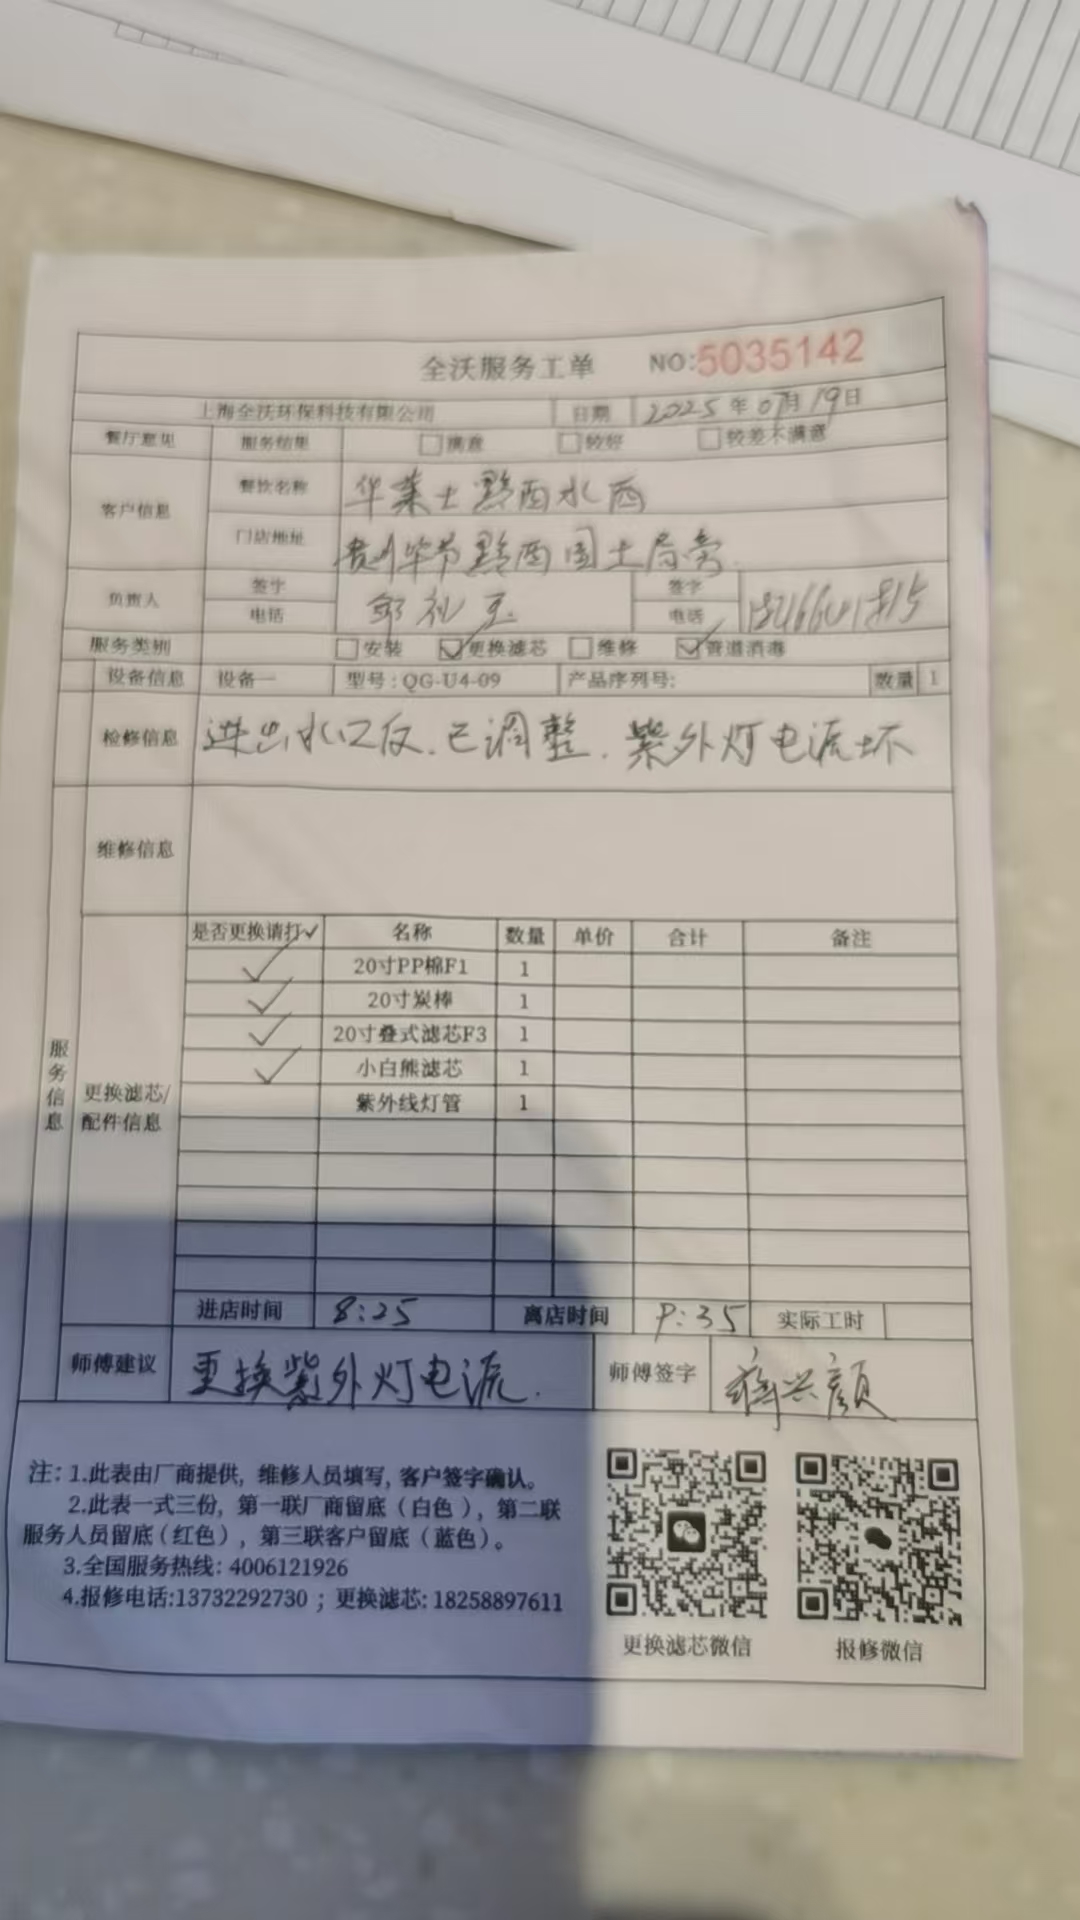 全沃服务工单 NO:5035142
上海全沃环保科技有限公司 日期 2025年07月19日
餐厅意见 服务结果 满意 较好 较差不满意
客户信息 餐饮名称 华莱士黔西水西
门店地址 贵州毕节黔西国土局旁
负责人 签字 签字
电话 邹礼 电话
服务类别 安装 更换滤芯 维修 管道消毒
设备信息 设备一 型号:QG-U4-09 产品序列号: 数量 1
检修信息 进出水口反.已调整.紫外灯电源坏
维修信息
服务信息
更换滤芯/
配件信息
是否更换请打✓ 名称 数量 单价 合计 备注
✓ 20寸PP棉F1 1
✓ 20寸炭棒 1
✓ 20寸叠式滤芯F3 1
✓ 小白熊滤芯 1
紫外线灯管 1
进店时间 8:25 离店时间 9:35 实际工时
师傅建议 更换紫外灯电源. 师傅签字 兴颜
注:1.此表由厂商提供,维修人员填写,客户签字确认。
2.此表一式三份,第一联厂商留底(白色),第二联
服务人员留底(红色),第三联客户留底(蓝色)。
3.全国服务热线:4006121926
4.报修电话:13732292730;更换滤芯:18258897611
更换滤芯微信 报修微信